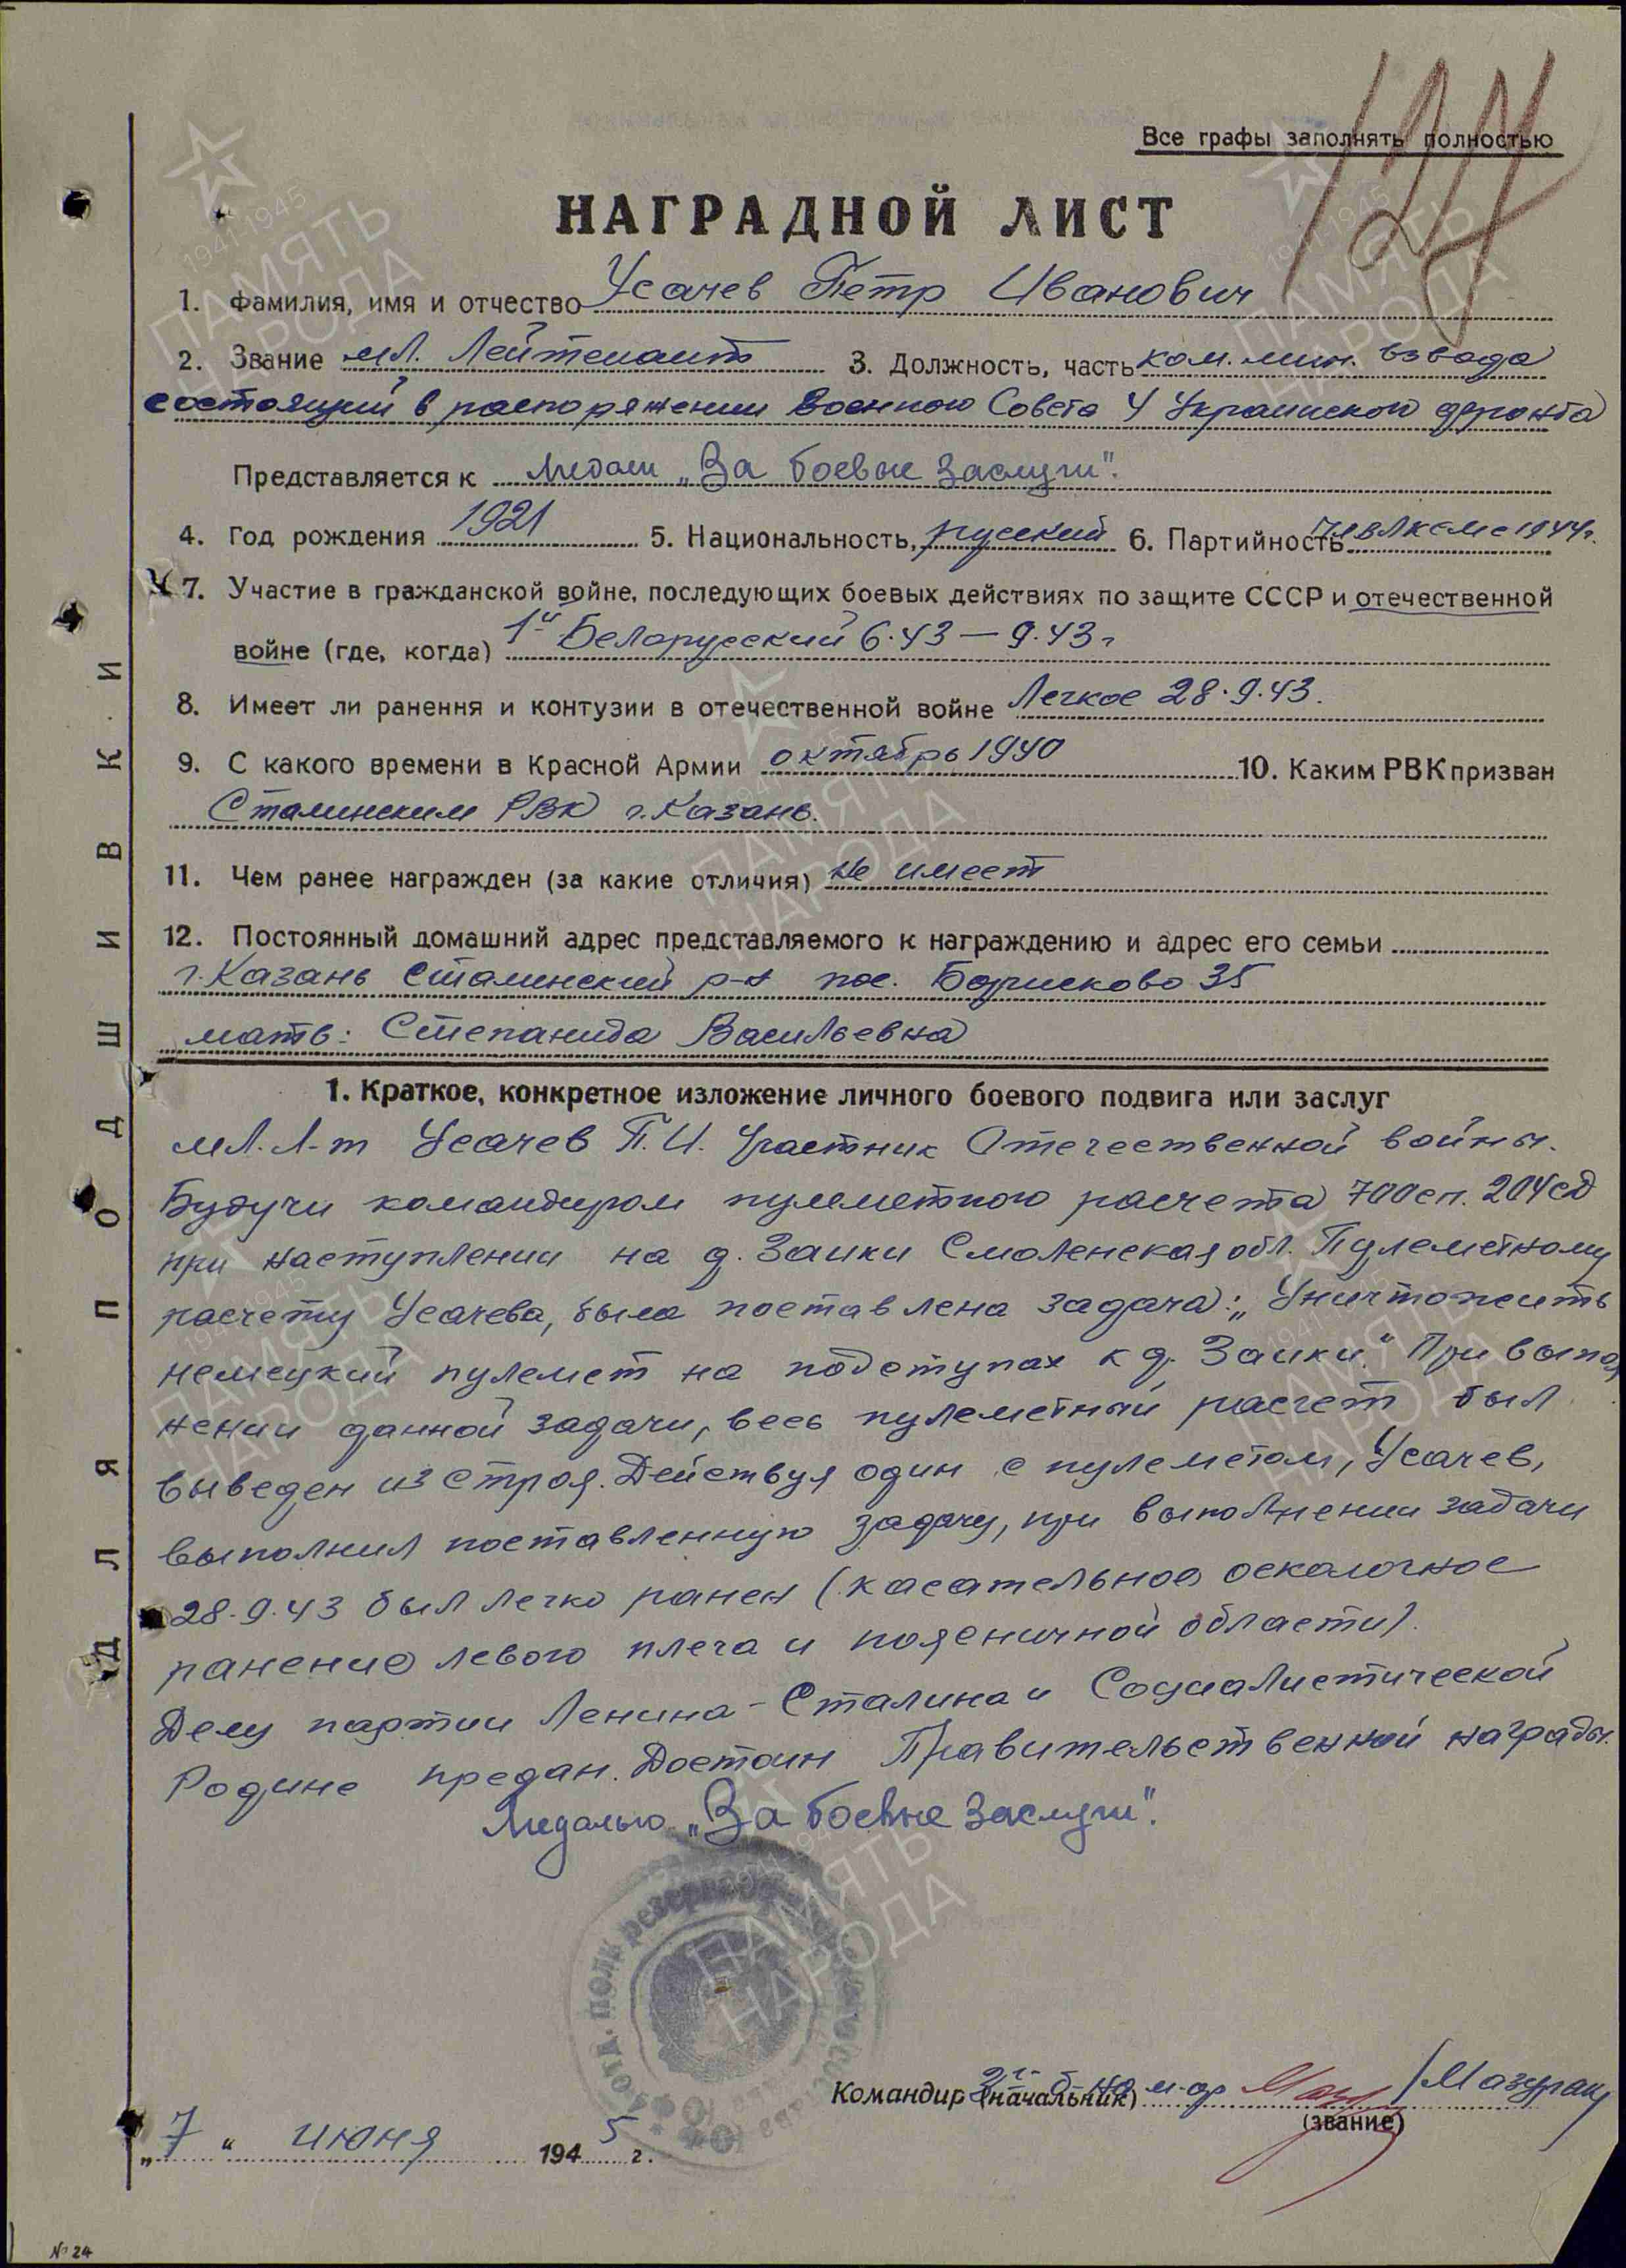 124
Все графы заполнять полностью
НАГРАДНОЙ ЛИСТ
1. Фамилия, имя и отчество Усачев Петр Иванович
2. Звание мл. Лейтенант 3. Должность, часть ком. мин. взвода
состоящий в распоряжении Военного Совета 4 Украинского фронта
Представляется к Медали „За боевые заслуги".
4. Год рождения 1921 5. Национальность, русский 6. Партийность чл ВЛКСМ с 1944г.
7. Участие в гражданской войне, последующих боевых действиях по защите СССР и отечественной
войне (где, когда) 1й Белорусский 6.43 — 9.43г
8. Имеет ли ранення и контузии в отечественной войне Легкое 28.9.43.
9. С какого времени в Красной Армии октябрь 1940 10. Каким РВК призван
Сталинским РВК г. Казань.
11. Чем ранее награжден (за какие отличия) не имеет
12. Постоянный домашний адрес представляемого к награждению и адрес его семьи
г. Казань Сталинский р-н пос. Борисково 35
мать: Степанида Васильевна
1. Краткое, конкретное изложение личного боевого подвига или заслуг
мл. л-т Усачев П.И. Участник Отечественной войны.
Будучи командиром пулеметного расчета 700сп. 204сд
при наступлении на д. Заики Смоленская обл. Пулеметному
расчету Усачева, была поставлена задача: „Уничтожить
немецкий пулемет на подступах к д. Заики." При выпол
нении данной задачи, весь пулеметный расчет был
выведен из строя. Действуя один с пулеметом, Усачев,
выполнил поставленную задачу, при выполнении задачи
28.9.43 был легко ранен (касательное осколочное
ранение левого плеча и поясничной области).
Делу партии Ленина-Сталина и Социалистической
Родине предан. Достоин Правительственной награды.
Медалью „За боевые заслуги".
Командир (начальник) 2й б-на м-ор /Мазурак/
(звание)
„7" июня 1945 г.
ДЛЯ ПОДШИВКИ
№ 24
1941 1945
ПАМЯТЬ
НАРОДА